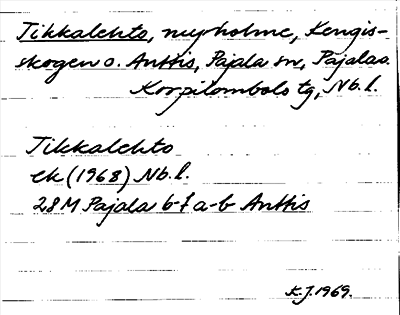 Tikkalehto, myrholme, Kengis-
skogen o. Anttis, Pajala sn, Pajala o.
Korpilombolo tg, Nb.l.
Tikkalehto
ek (1968) Nb.l.
28M Pajala 6-f a-b Anttis
K.J. 1969.